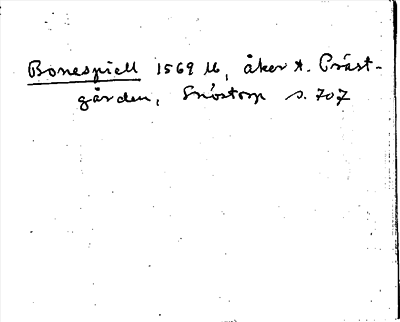 Bonespiell 1569 lb, åker t. Präst-
gården, Snöstorp s. 707